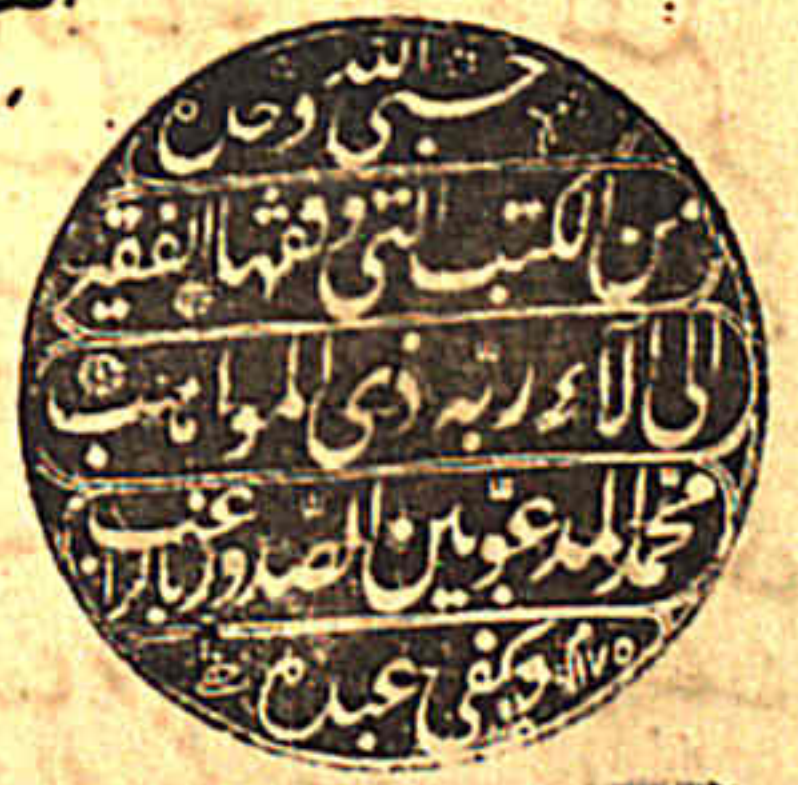 حسبي الله وحده
من الكتب التي وقفها الفقير
الى آلاء ربّه ذي المواهب
محمد المدعوّ بين الصّدور بالراغب
ويكفي عبده